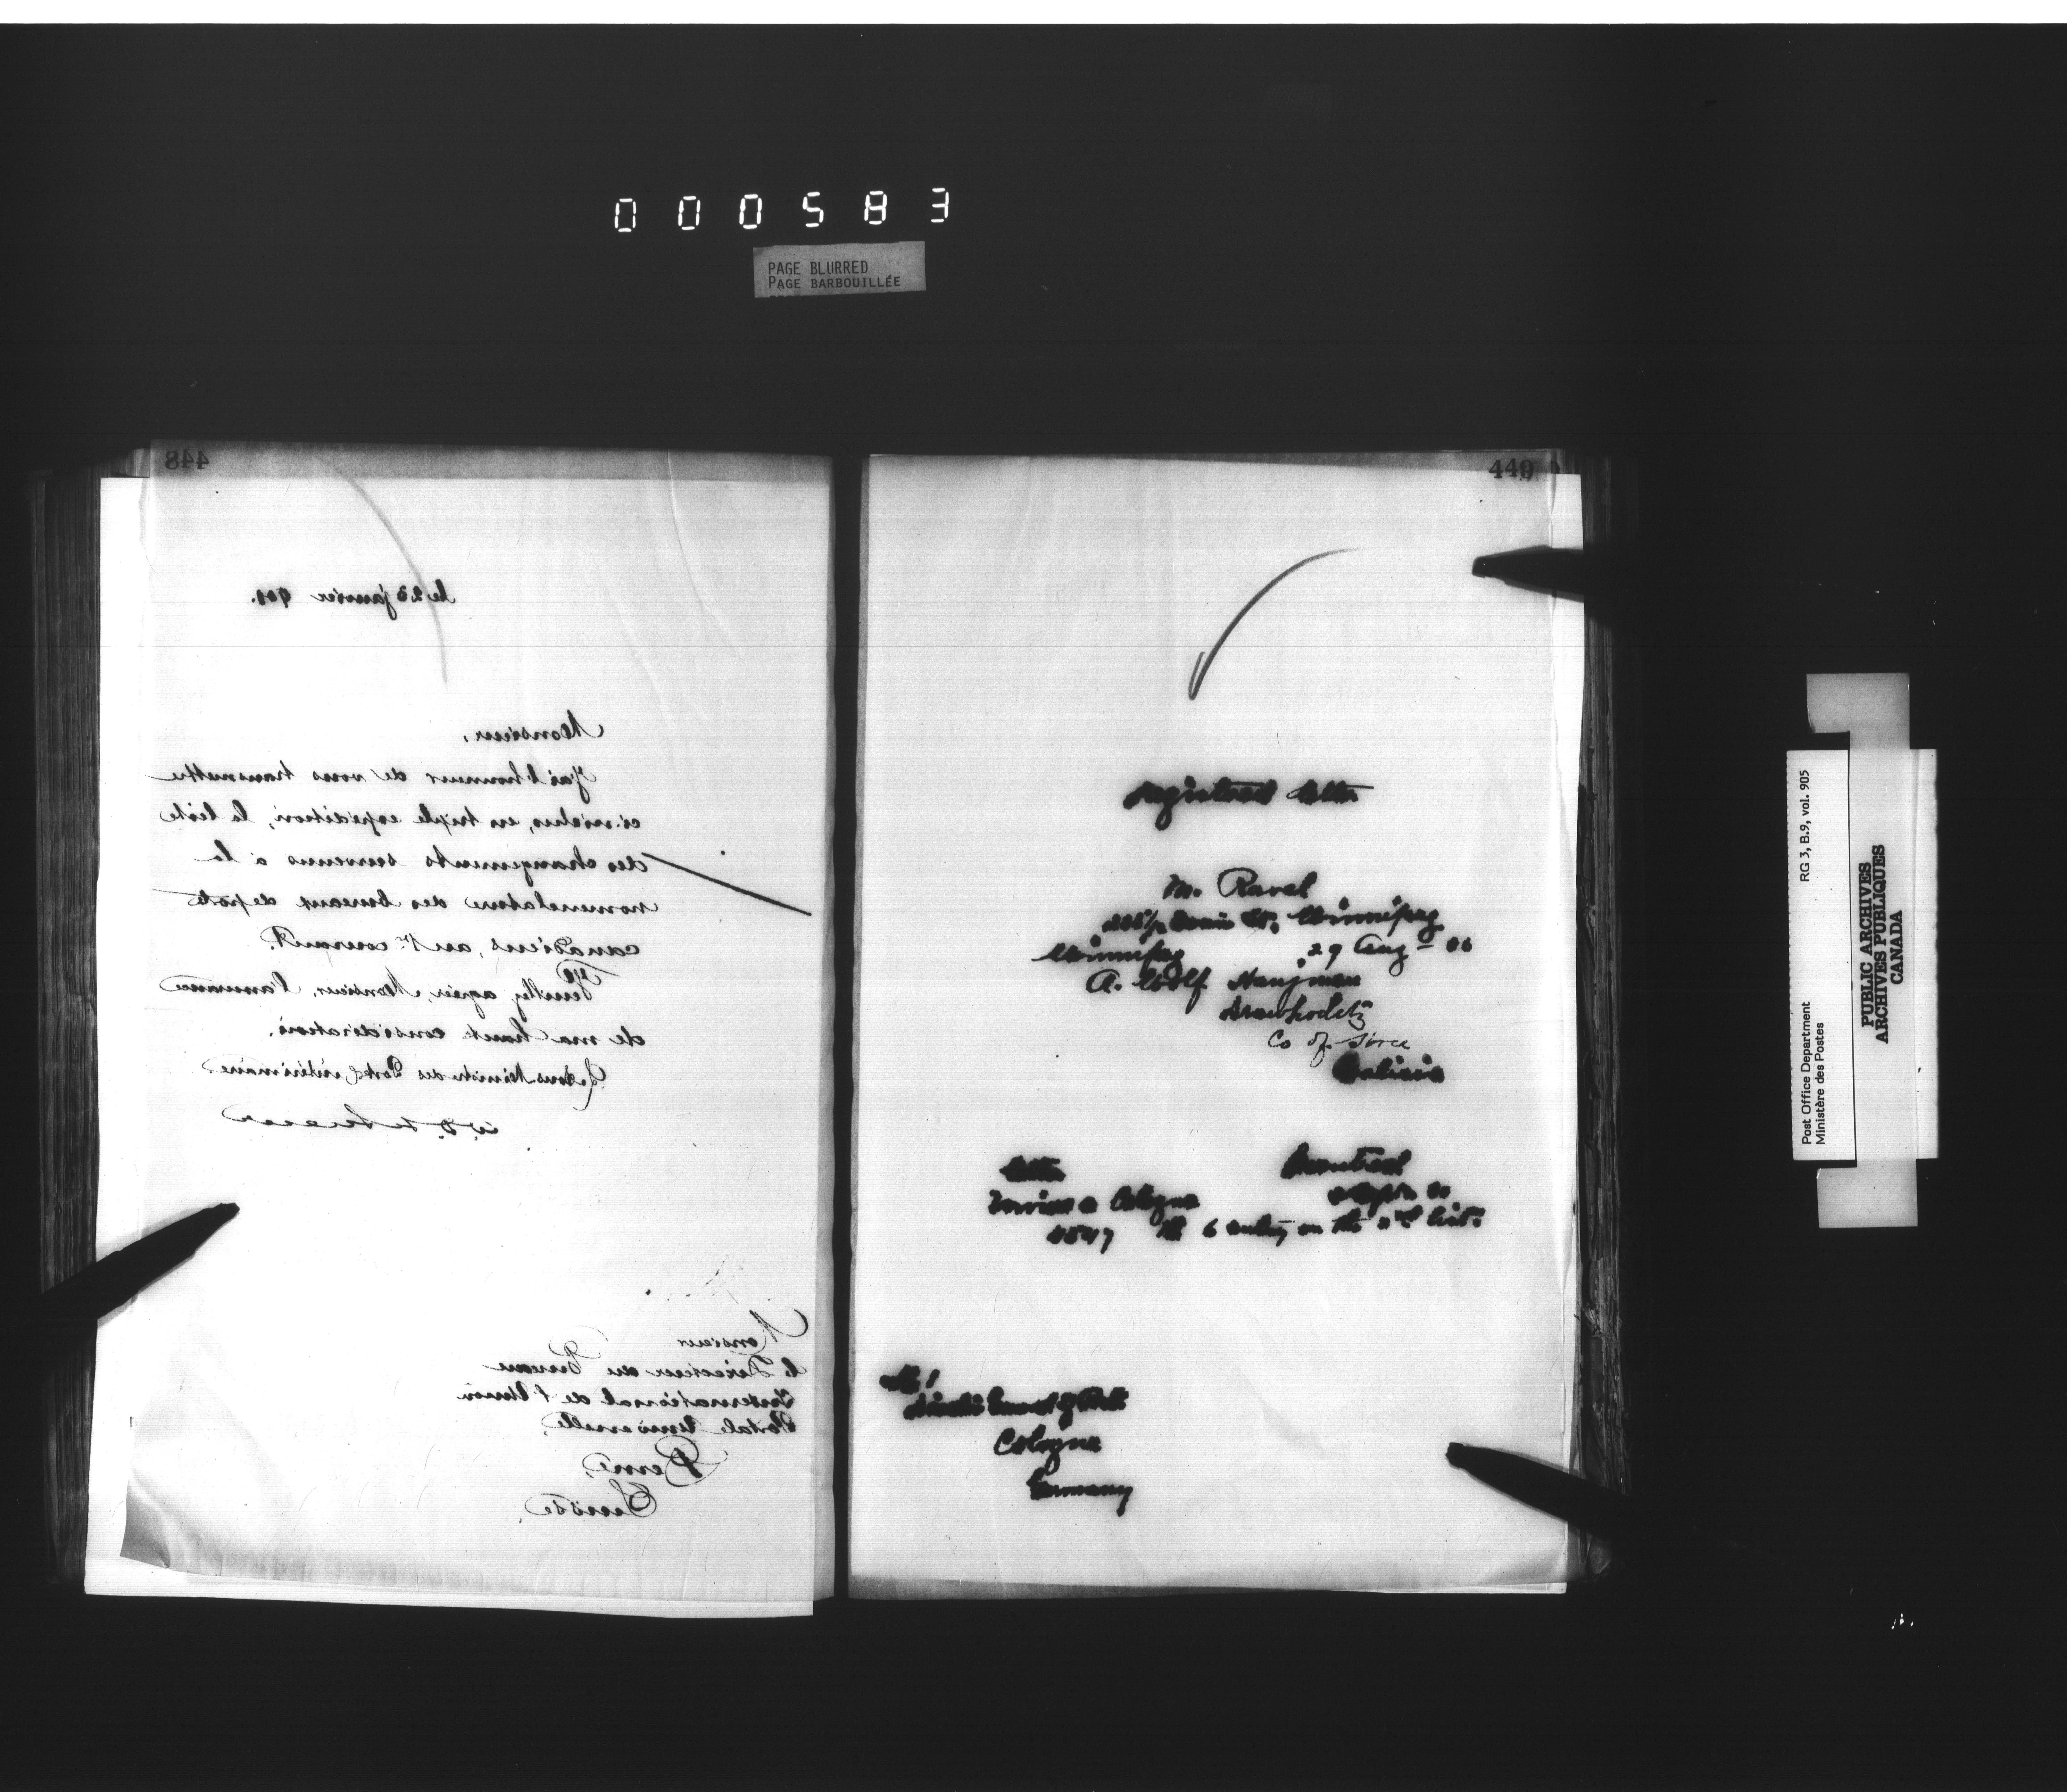 000583
PAGE BLURRED
PAGE BARBOUILLÉE
448
le 23 janvier 901.
Monsieur,
J'ai l'honneur de vous transmettre
ci-inclus, en triple expédition, la liste
des changements survenus à la
nomenclature des bureaux de poste
canadiens, au 1er courant.
Veuillez agréer, Monsieur, l'assurance
de ma haute considération.
Le Sous Ministre des Postes intérimaire
Monsieur
le Directeur du Bureau
International de l'Union
Postale Universelle,
Berne,
Suisse.
449
Registered letter
M. Ravel
Main St. Winnipeg
Winnipeg 29 Aug 00
A. Wolf
Co of
Galicia
Letter Montreal
Cologne
6 entry on the 2nd list.
Cologne
Germany
Post Office Department RG 3, B.9, vol. 905
Ministère des Postes
PUBLIC ARCHIVES
ARCHIVES PUBLIQUES
CANADA